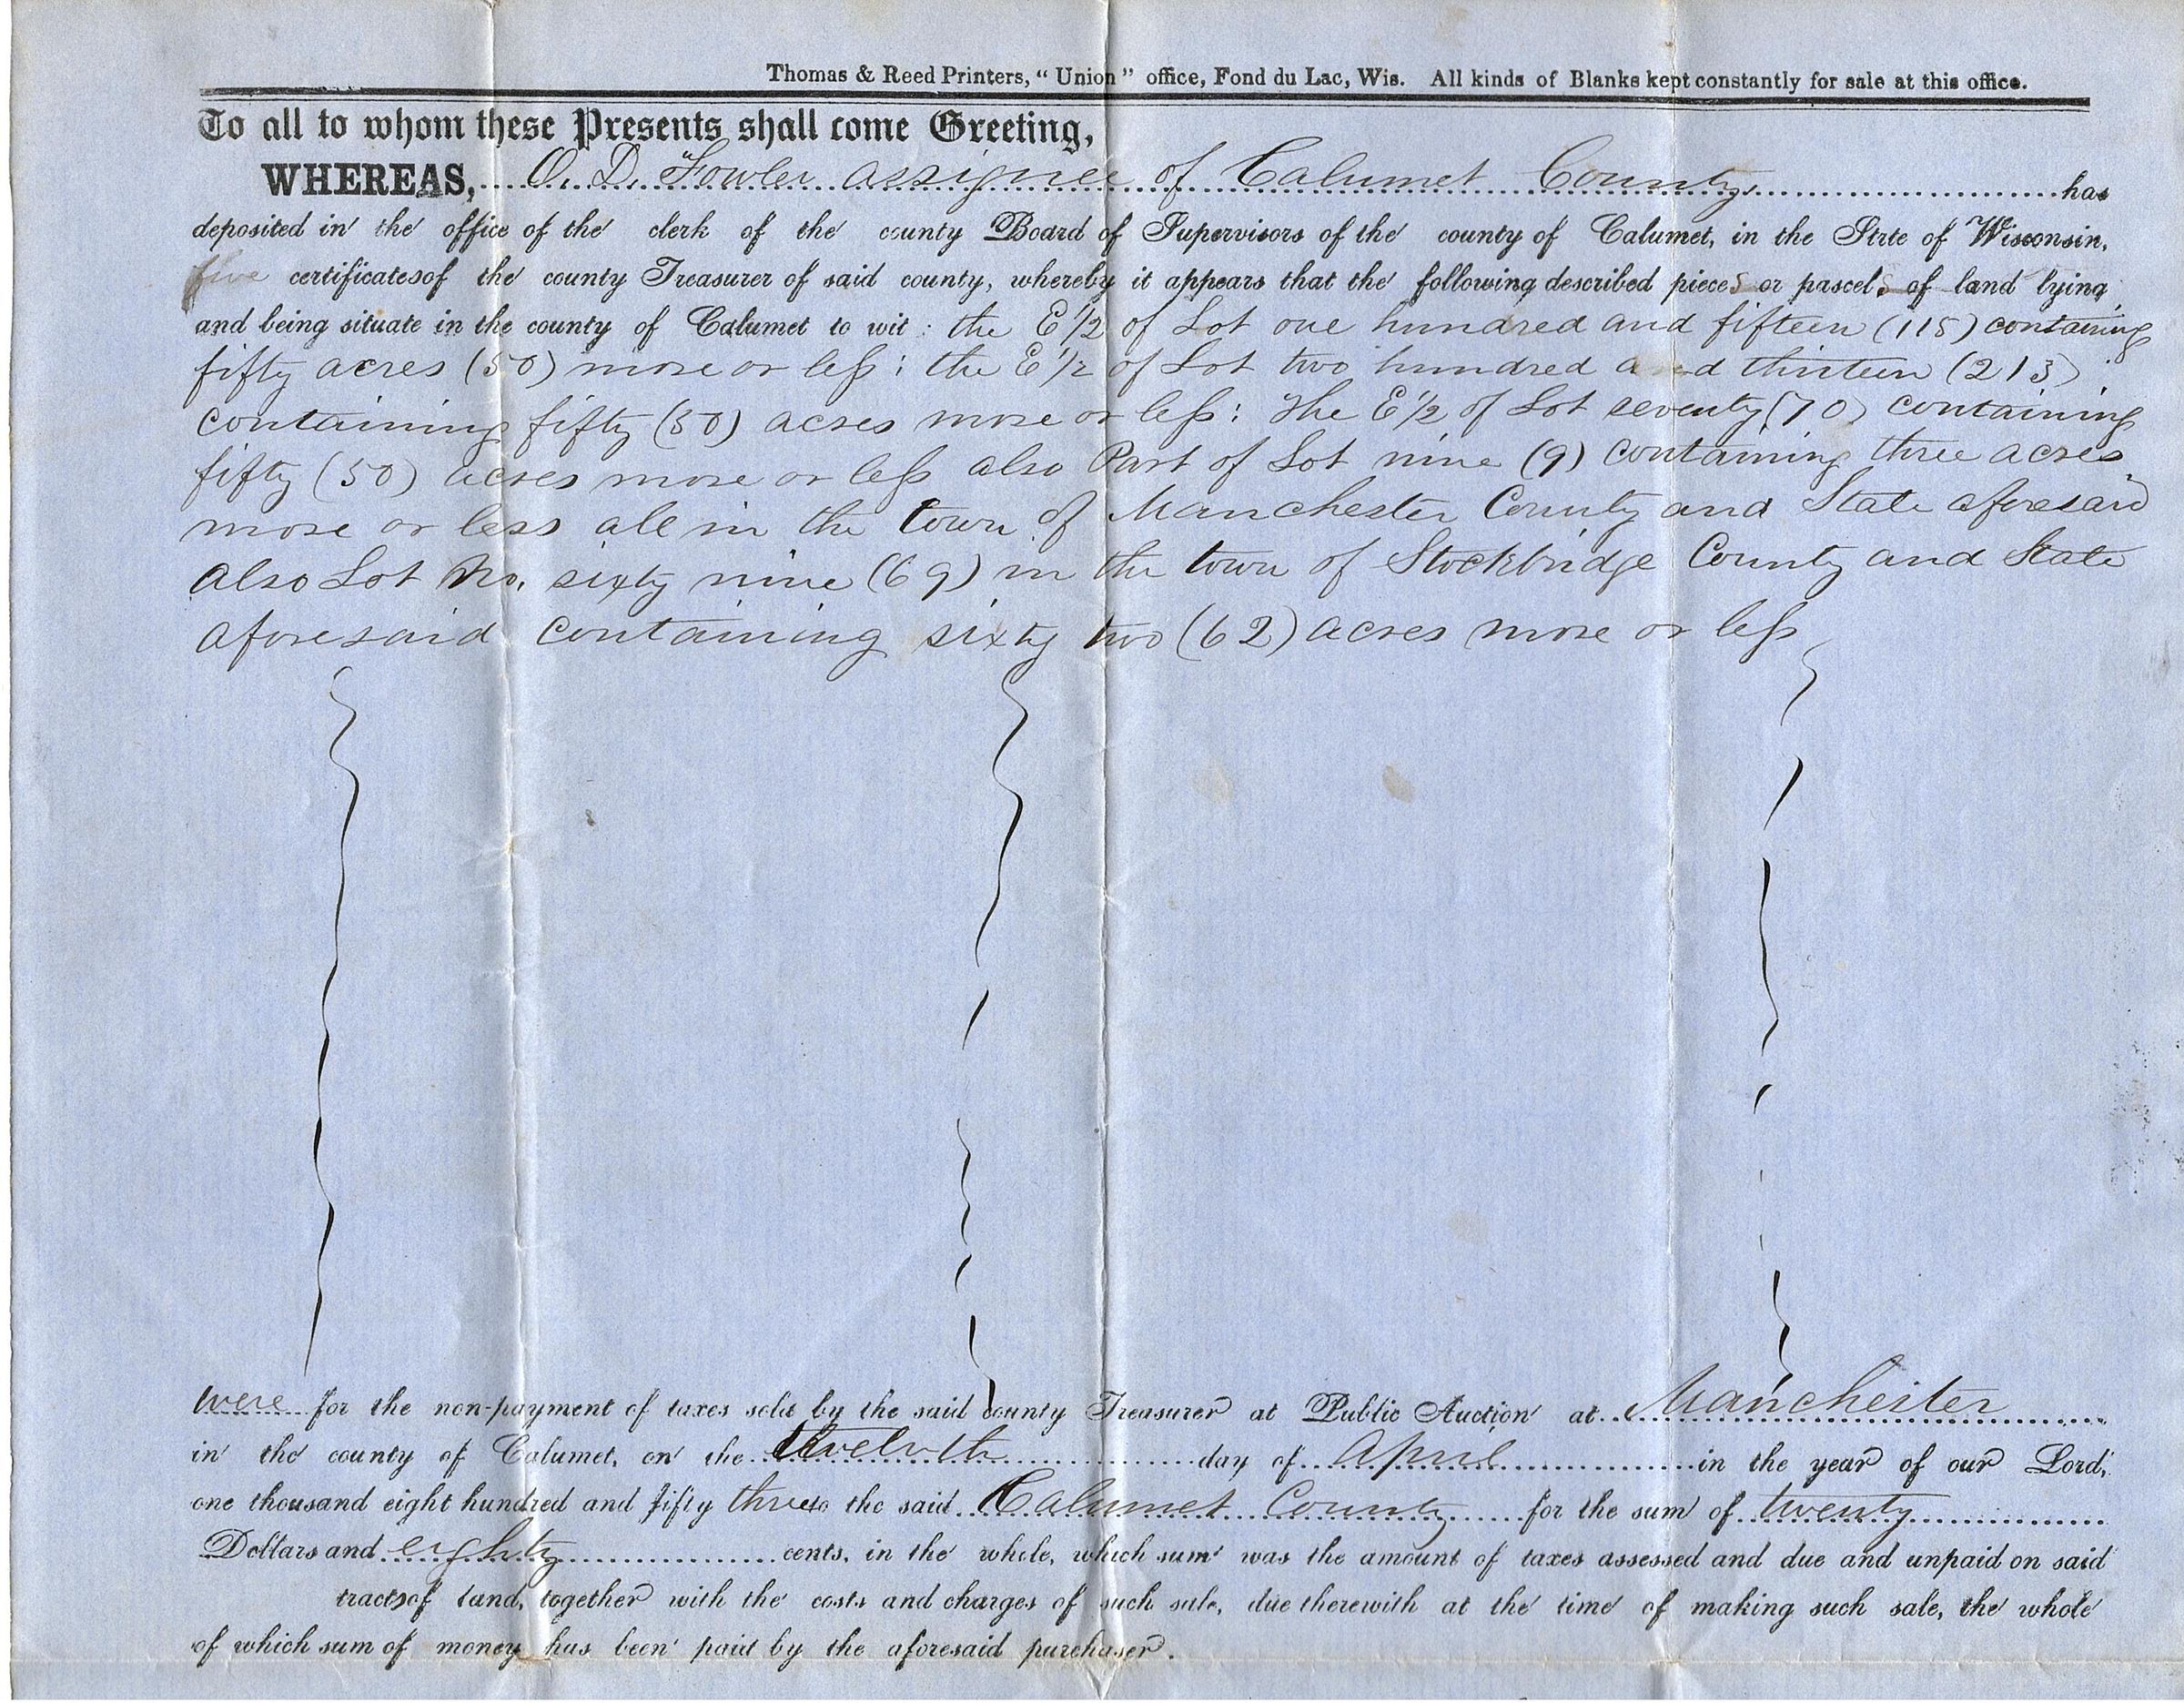 Thomas & Reed Printers, "Union" office, Fond du Lac, Wis. All kinds of Blanks kept constantly for sale at this office.
To all to whom these Presents shall come Greeting,
WHEREAS, O. D. Fowler assignee of Calumet County has
deposited in the office of the clerk of the county Board of Supervisors of the county of Calumet, in the Strte of Wisconsin,
five certificates of the county Treasurer of said county, whereby it appears that the following described pieces or pascels of land lying
and being situate in the county of Calumet to wit: the E 1/2 of Lot one hundred and fifteen (115) containing
fifty acres (50) more or less; the E 1/2 of Lot two hundred and thirteen (213)
containing fifty (50) acres more or less; the E 1/2 of Lot seventy (70) containing
fifty (50) acres more or less also Part of Lot nine (9) containing three acres
more or less all in the town of Manchester County and State aforesaid
also Lot No. sixty nine (69) in the town of Stockbridge County and State
aforesaid containing sixty two (62) acres more or less
were for the non-payment of taxes sold by the said county Treasurer at Public Auction at Manchester
in the county of Calumet, on the twelvth day of April in the year of our Lord,
one thousand eight hundred and fifty three to the said Calumet County for the sum of twenty
Dollars and eighty cents, in the whole, which sum was the amount of taxes assessed and due and unpaid on said
tracts of land, together with the costs and charges of such sale, due therewith at the time of making such sale, the whole
of which sum of money has been paid by the aforesaid purchaser.